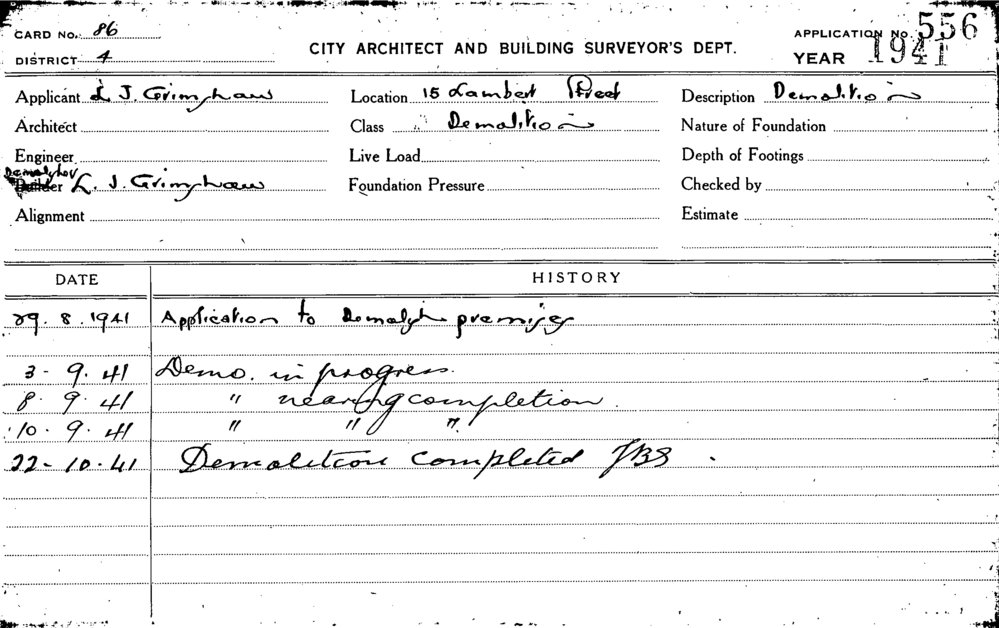 CARD No. 86
DISTRICT 4
CITY ARCHITECT AND BUILDING SURVEYOR'S DEPT.
APPLICATION No. 556
YEAR 1941
Applicant L. J. Grimshaw Location 15 Lambert Street Description Demolition
Architect Class Demolition Nature of Foundation
Engineer Live Load Depth of Footings
Demolisher
Builder L. J. Grimshaw Foundation Pressure Checked by
Alignment Estimate
DATE HISTORY
29. 8. 1941 Application to Demolish premises
3 - 9. 41 Demo. in progress.
8. 9. 41 " nearing completion.
10. 9. 41 " " "
22 - 10. 41 Demolition completed JBS